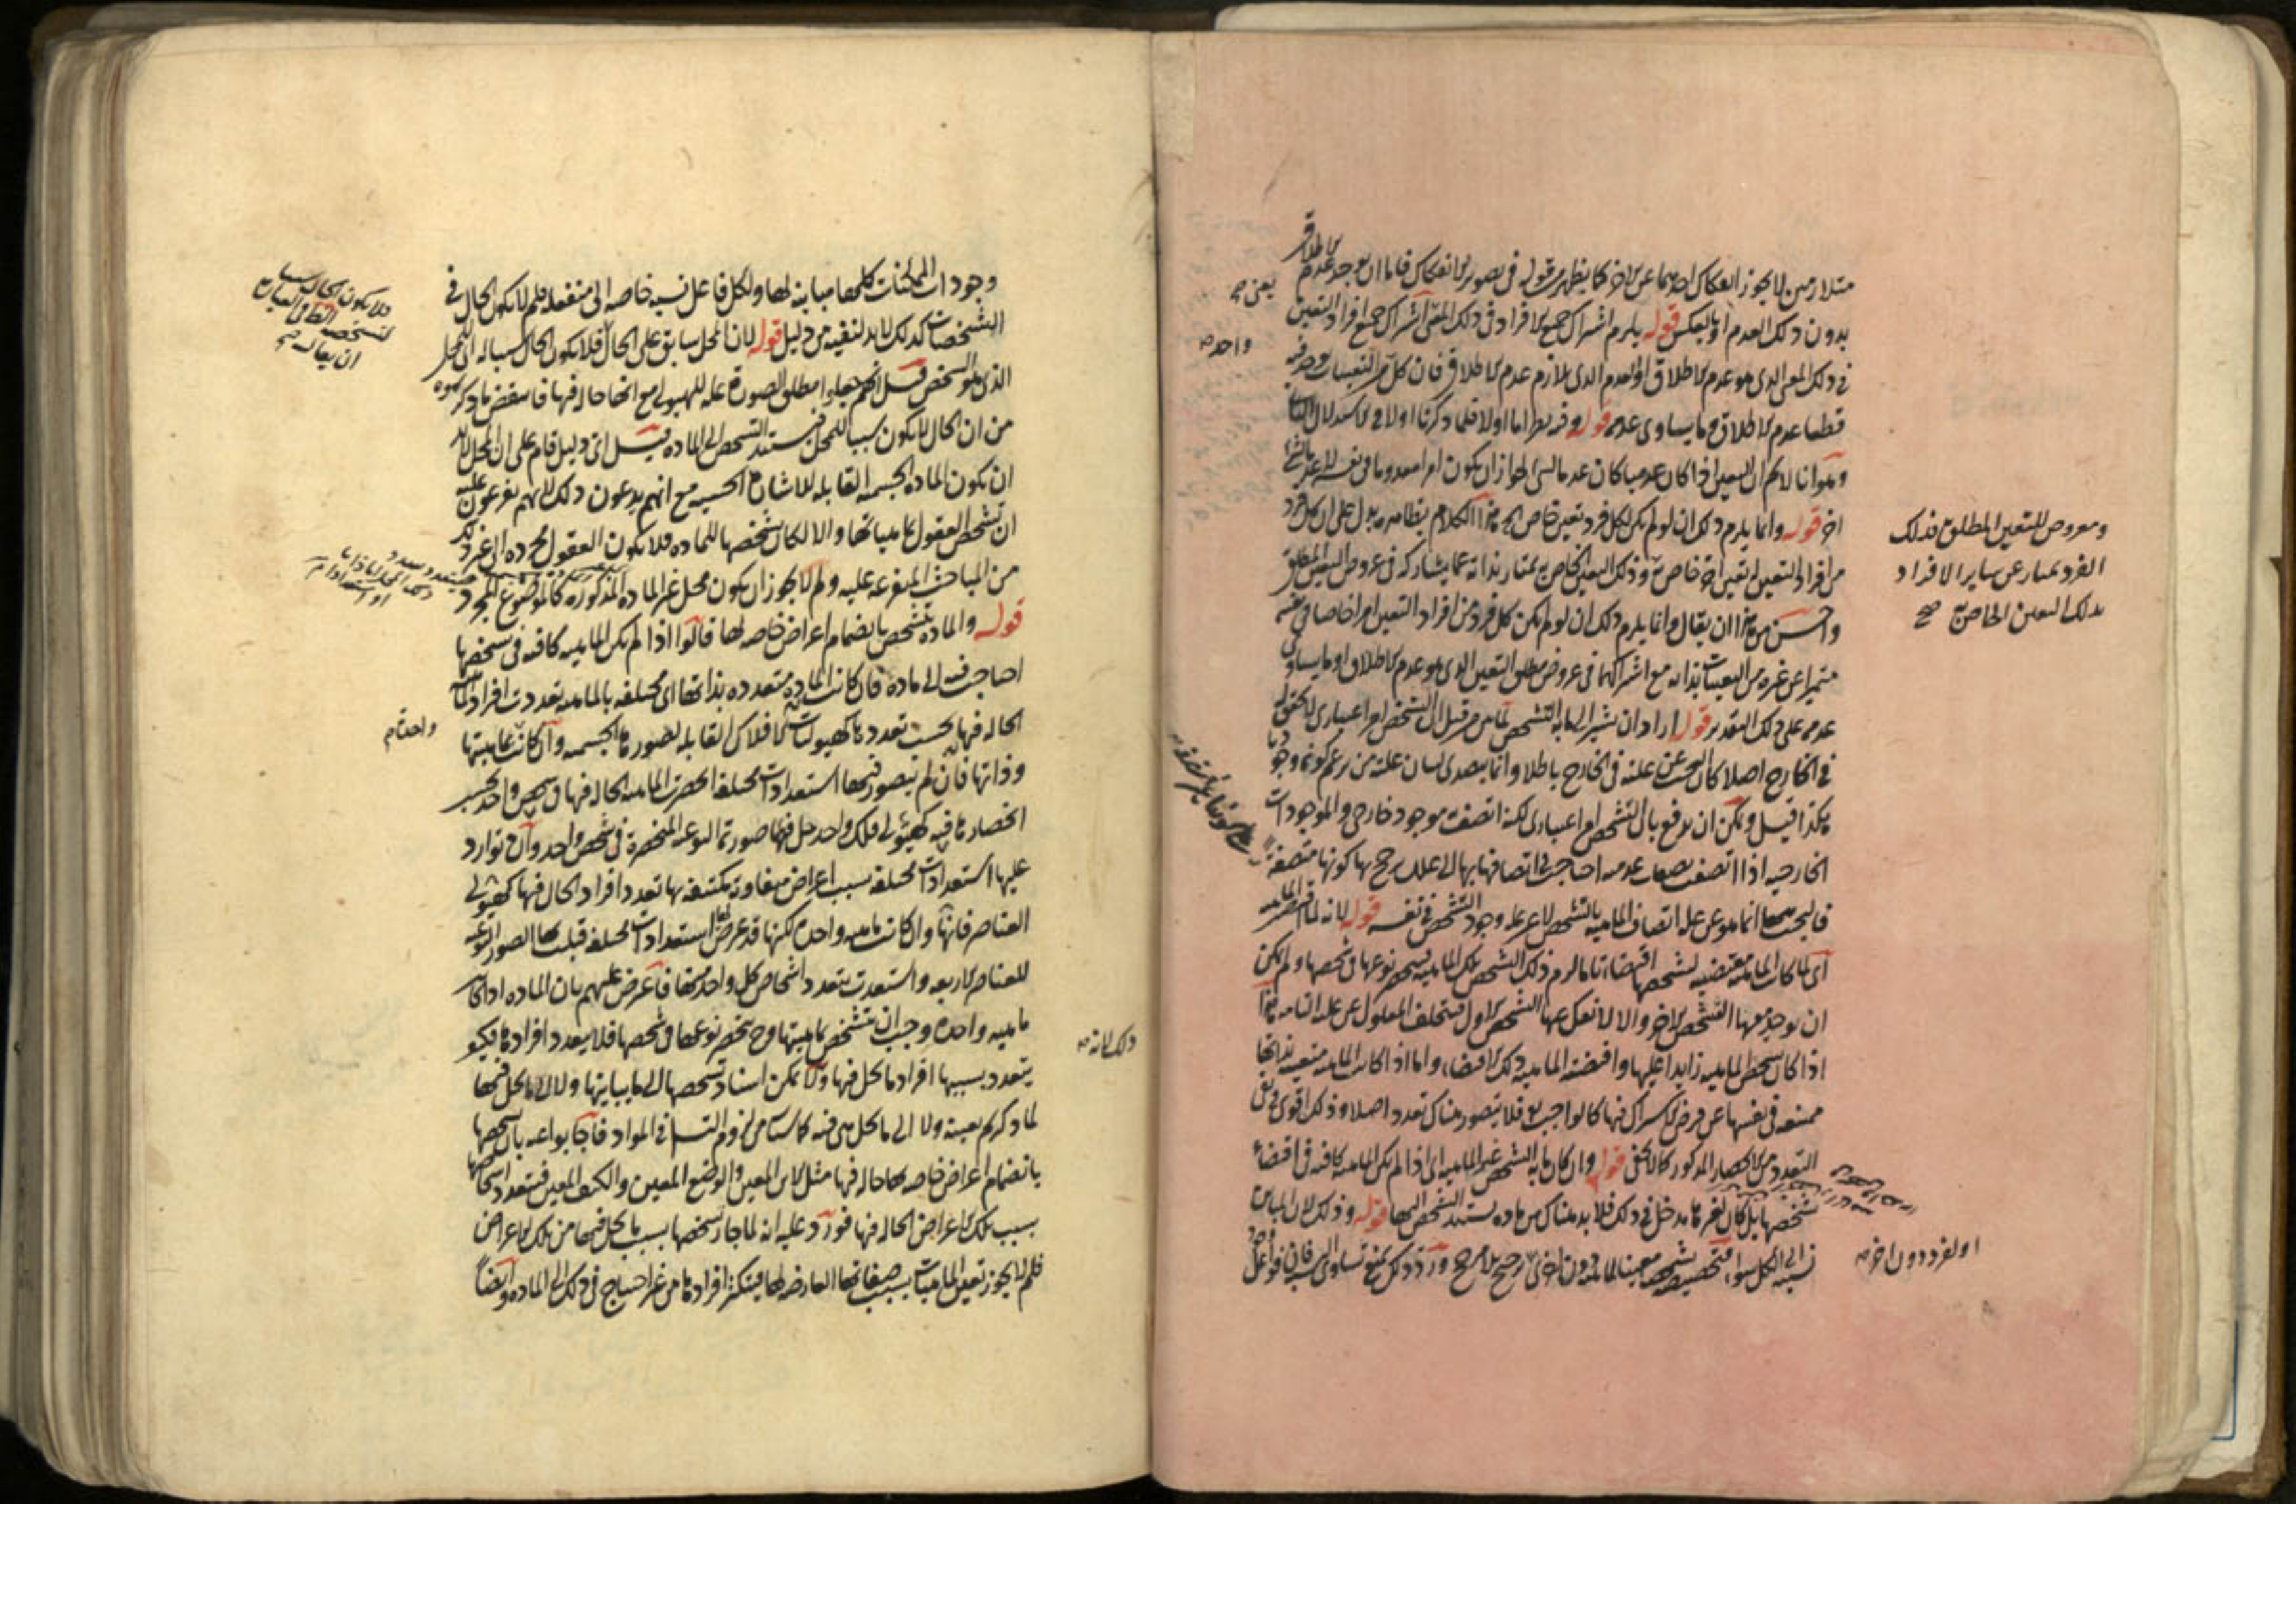 متلازمين لا يجوز انفكاك احدهما عن الاخر كما يظهر من قوله في تصوير الانفكاك فاما ان يوجد عدم الاطلاق
بدون ذلك العدم او بالعكس قوله يلزم اشتراك جميع الافراد في ذلك المعنى اشتراك جميع افراد التعين
في ذلك المعنى الذي هو عدم الاطلاق او العدم الذي يلازم عدم الاطلاق فان كل من التعينات يوجد فيه
قطعا عدم الاطلاق وما يساوي عدمه قوله وفيه نظر اما اولا فلما ذكرنا اولا في الاستدلال
وهو انا لا نم ان التعين اذا كان عدميا كان عدما لشيء لجواز ان يكون امرا معدوما في نفسه لا عدما لشيء
اخر قوله وانما يلزم ذلك ان لو لم يكن لكل فرد تعين خاص الخ هذا الكلام بظاهره يدل على ان لكل فرد
من افراد التعين تعين اخر خاص وذلك التعين الخاص يمتاز بذاته عما يشاركه في عروض التعين المطلق
واحسن من هذا ان يقال وانما يلزم ذلك ان لو لم يكن كل فرد من افراد التعين امرا خاصا في نفسه
متميزا عن غيره من التعينات بذاته مع اشتراكهما في عروض مطلق التعين الذي هو عدم الاطلاق او ما يساوي
عدمه على ذلك التقدير قوله اراد ان يشير الى ما به التشخص لما من قبل ان التشخص امر اعتباري لا تحقق له
في الخارج اصلا كان البحث عن علته في الخارج باطلا وانما يتصدى لبيان علته من زعم كونه وجوديا
هكذا قيل ويمكن ان يدفع بان التشخص امر اعتباري لكنه اتصف موجود خارجي والموجودات
الخارجية اذا اتصفت بصفات عدمية احتاجت في اتصافها بها الى علل يرجح بها كونها متصفة
فالبحث ههنا انما هو عن علة اتصاف الماهية بالتشخص لا عن علة وجود التشخص في نفسه قوله لانه لما اقتضى الماهية
اي لما كانت الماهية مقتضية لتشخصها اقتضاء تاما لزم ذلك التشخص تلك الماهية فينحصر نوعها في شخصها ولم يمكن
ان يوجد معها التشخص الاخر والا لانفك عنها التشخص الاول فيتخلف المعلول عن علته التامة هذا
اذا كان تشخص الماهية زايدا عليها واقتضته الماهية ذلك الاقتضاء واما اذا كانت الماهية متعينة بذاتها
ممتنعة في نفسها عن فرض الاشتراك فيها كالواجب تع فلا يتصور هناك تعدد اصلا وذلك اقوى في نفي
التعدد من الانحصار المذكور كما لا يخفى قوله وان كان ما به التشخص غير الماهية اي اذا لم يكن الماهية كافية في اقتضاء
تشخصها بل كان لغيرها مدخل في ذلك فلا بد هناك من مادة يستند التشخص اليها قوله وذلك لان المباين
نسبته الى الكل سواء فتخصيصه بتشخص معين لماهية دون اخرى ترجيح بلا مرجح ورد ذلك بمنع تساوي النسبة فان فواعل
يعني صح
واحد صح
ومعروض للتعين المطلق فذلك
الفرد يمتاز عن ساير الافراد
بذلك التعين الخاص صح
او لفرد دون اخر صح
وجودات الممكنات كلها مباينة لها ولكل فاعل نسبة خاصة الى منفعله فلم لا يكون الحال في
التشخصات كذلك لا بد لنفيه من دليل قوله لان المحل سابق على الحال فلا يكون الحال سببا له اي للمحل
الذي هو المشخص قيل انهم جعلوا مطلق الصورة علة للهيولى مع انها حالة فيها فانتقض ما ذكروه
من ان الحال لا يكون سببا للمحل فيستند التشخص الى المادة قيل اي دليل قام على ان المحل لا بد
ان يكون المادة الجسمية القابلة للاشارة الحسية مع انهم يدعون ذلك لانهم يفرعون عليه
ان تشخص العقول بماهياتها والا لكان تشخصها للمادة فلا يكون العقول مجردة الى غير ذلك
من المباحث المتفرعة عليه ولم لا يجوز ان يكون محل غير المادة المذكورة كالموضوع المجرد
قوله والمادة يتشخص بانضمام اعراض خاصة لها قالوا اذا لم يكن الماهية كافية في تشخصها
احتاجت فيه الى مادة فان كانت المادة متعددة بذاتها اي مختلفة بالماهية تعددت افراد الماهية
الحالة فيها بحسب تعددها كهيوليات الافلاك القابلة لصورها الجسمية وان كانت بماهيتها
وذاتها فان لم يتصور فيها استعدادات مختلفة انحصرت الماهية الحالة فيها في شخص واحد بحسب
انحصارها فيه كهيولى فلك واحد حل فيها صورتها النوعية المنحصرة في شخص واحد وان توارد
عليها استعدادات مختلفة بسبب اعراض متفاوتة مكتنفة بها تعدد افراد الحال فيها كهيولى
العناصر فانها وان كانت ماهية واحدة لكنها قد عرض لها استعدادات مختلفة قبلت بها الصور النوعية
للعناصر الاربعة واستعدت بتعدد اشخاص كل واحدة منها فاعترض عليهم بان المادة اذا كانت
ماهية واحدة وجب ان يتشخص بماهيتها وح ينحصر نوعها في شخصها فلا يتعدد افرادها فكيف
يتعدد بسببها افراد ما يحل فيها ولا يمكن اسناد تشخصها الى ما يباينها ولا الى ما يحل فيها
لما ذكرتم بعينه ولا الى ما يحل هي فيه لاستلزامه التسلسل في المواد فاجابوا عنه بان تشخصها
بانضمام اعراض خاصة بها حالة فيها مثل الاين المعين والوضع المعين والكيف المعين فتعدد اشخاصها
بسبب تلك الاعراض الحالة فيها فورد عليه انه لما جاز تشخصها بسبب ما يحل فيها من تلك الاعراض
فلم لا يجوز تعين الماهيات بسبب صفاتها العارضة لها فيتكثر افرادها من غير احتياج في ذلك الى المادة وايضا
فلا يكون الحال سببا
لتشخصه
ان يقال صح
واحدة صح
ذلك لانه صح